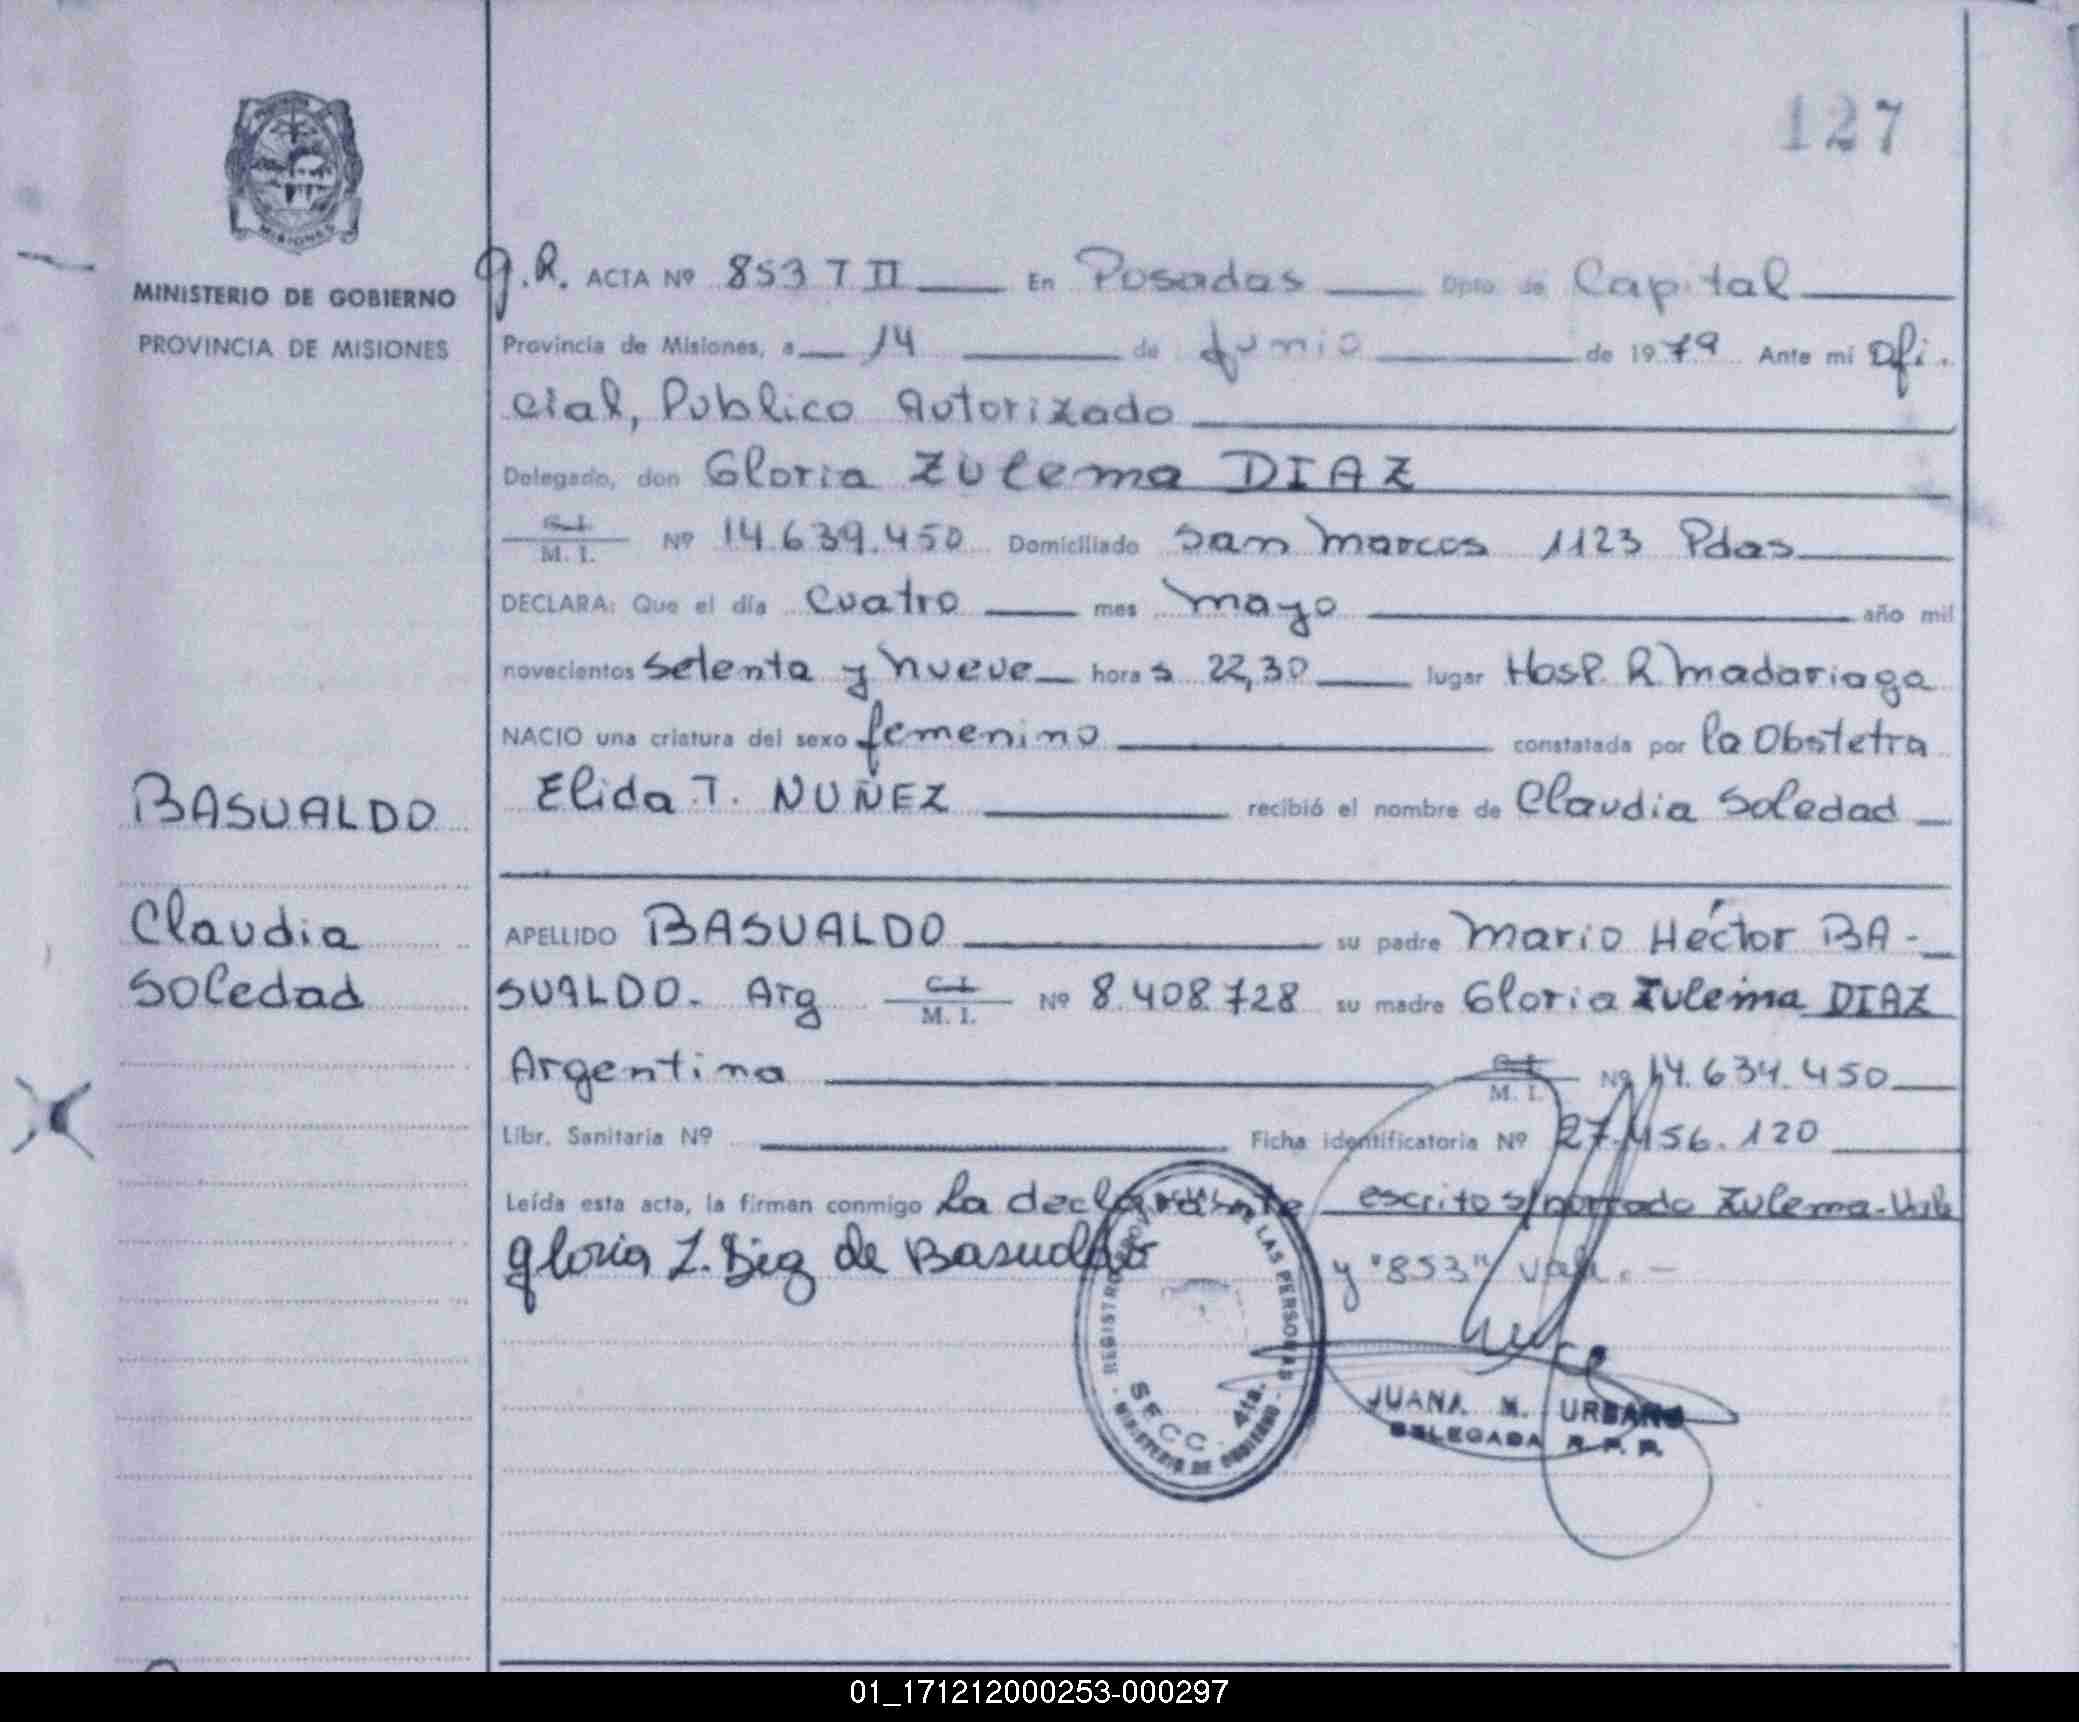 127
MISIONES
MINISTERIO DE GOBIERNO
PROVINCIA DE MISIONES
BASUALDO
Claudia
Soledad
g.R. ACTA Nº 853 T II En Posadas Dpto de Capital
Provincia de Misiones, a 14 de Junio de 1979 Ante mi Ofi.
cial, Publico Autorizado
Delegado, don Gloria Zulema DIAZ
C.I. M. I. Nº 14.639.450 Domiciliado San Marcos 1123 Pdas
DECLARA: Que el día cuatro mes mayo año mil
novecientos setenta y nueve hora s 22,30 lugar Hosp. R Madariaga
NACIO una criatura del sexo femenino constatada por la Obstetra
Elida T. NUÑEZ recibió el nombre de Claudia Soledad
APELLIDO BASUALDO su padre Mario Héctor BA-
SUALDO. Arg C.I. M. I. Nº 8.408.728 su madre Gloria Zulema DIAZ
Argentina C.I. M. I. Nº 14.634.450
Libr. Sanitaria Nº Ficha identificatoria Nº 27.456.120
Leída esta acta, la firman conmigo La declarante escrito s/borrado Zulema-Vale
gloria Z. Diaz de Basualdo y "853" vale.-
REGISTRO PROVINCIAL DE LAS PERSONAS
SECC. 4ta.
MINISTERIO DE GOBIERNO
JUANA M. URBANO
DELEGADA R. P. P.
01_171212000253-000297